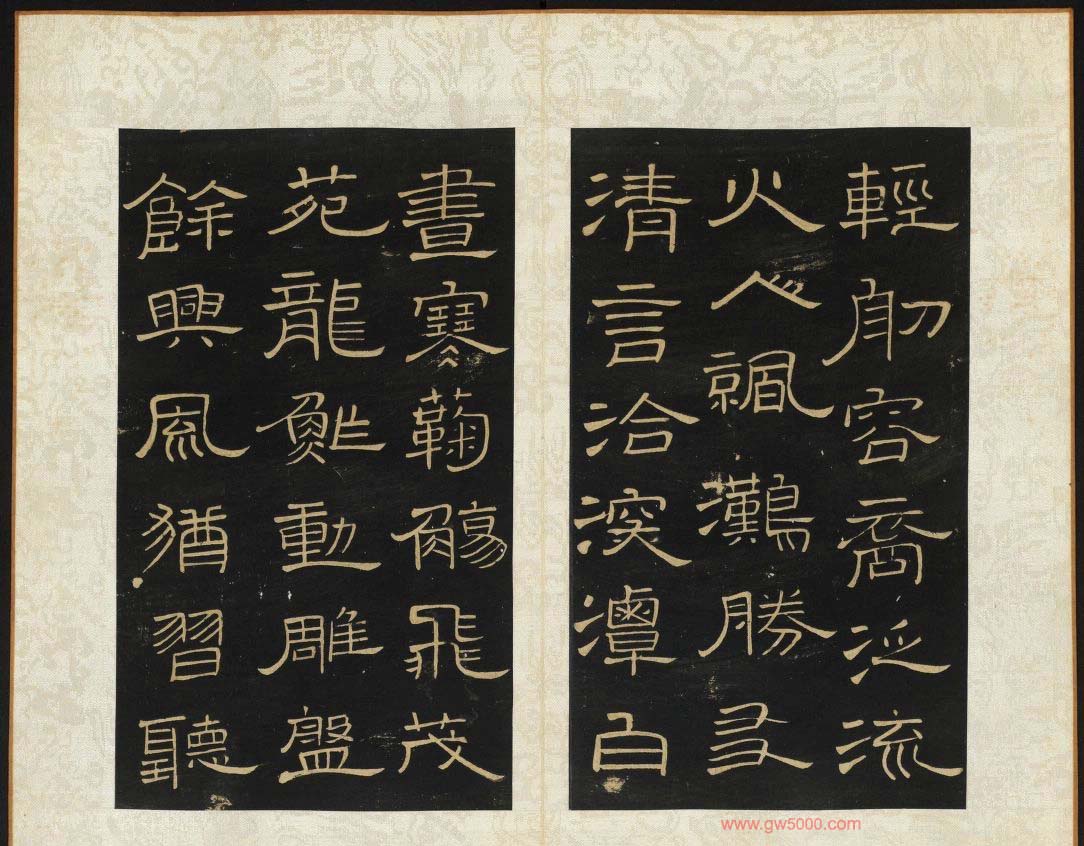 輕舠容裔泛流
火人灘勝友
清言洽深潭白
晝寒蘜觴飛茂
苑龍鮓動雕盤
餘興風猶習聽
www.gw5000.com